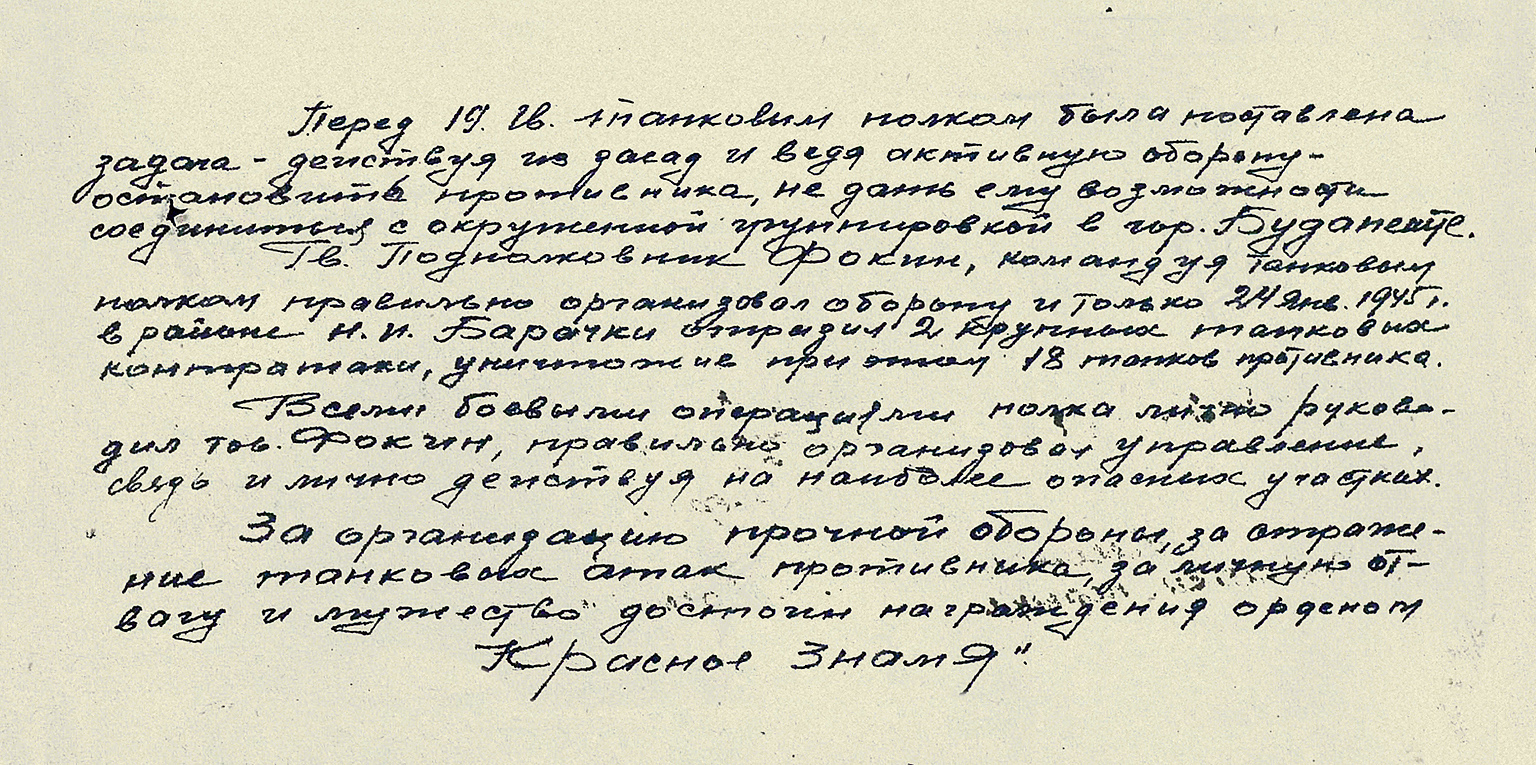 Перед 19. Гв. танковым полком была поставлена
задача - действуя из засад и ведя активную оборону -
остановить противника, не дать ему возможности
соединиться с окруженной группировкой в гор. Будапеште.
Гв. Подполковник Фокин, командуя танковым
полком правильно организовал оборону и только 24 янв. 1945 г.
в районе н. п. Барачки отразил 2 крупных танковых
контратаки, уничтожив при этом 18 танков противника.
Всеми боевыми операциями полка лично руково-
дил тов. Фокин, правильно организовал управление,
связь и лично действуя на наиболее опасных участках.
За организацию прочной обороны, за отраже-
ние танковых атак противника, за личную от-
вагу и мужество достоин награждения орденом
Красное Знамя".